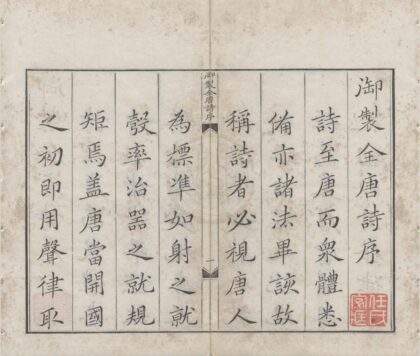 御製全唐詩序
詩至唐而衆體悉
備亦諸法畢該故
稱詩者必視唐人
為標準如射之就
彀率治器之就規
矩焉蓋唐當開國
之初即用聲律取
御製全唐詩序
一